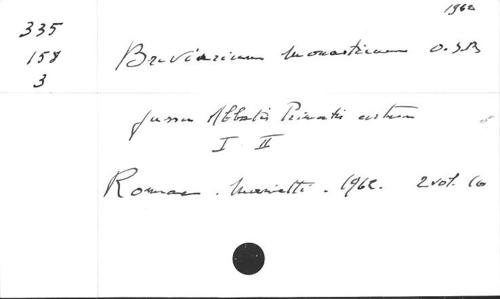 1962
335
158
3
Breviarium Monasticum O.S.B
jussu Abbatis Primatis
I II
Romae. Marietti. 1962. 2 vol. 16